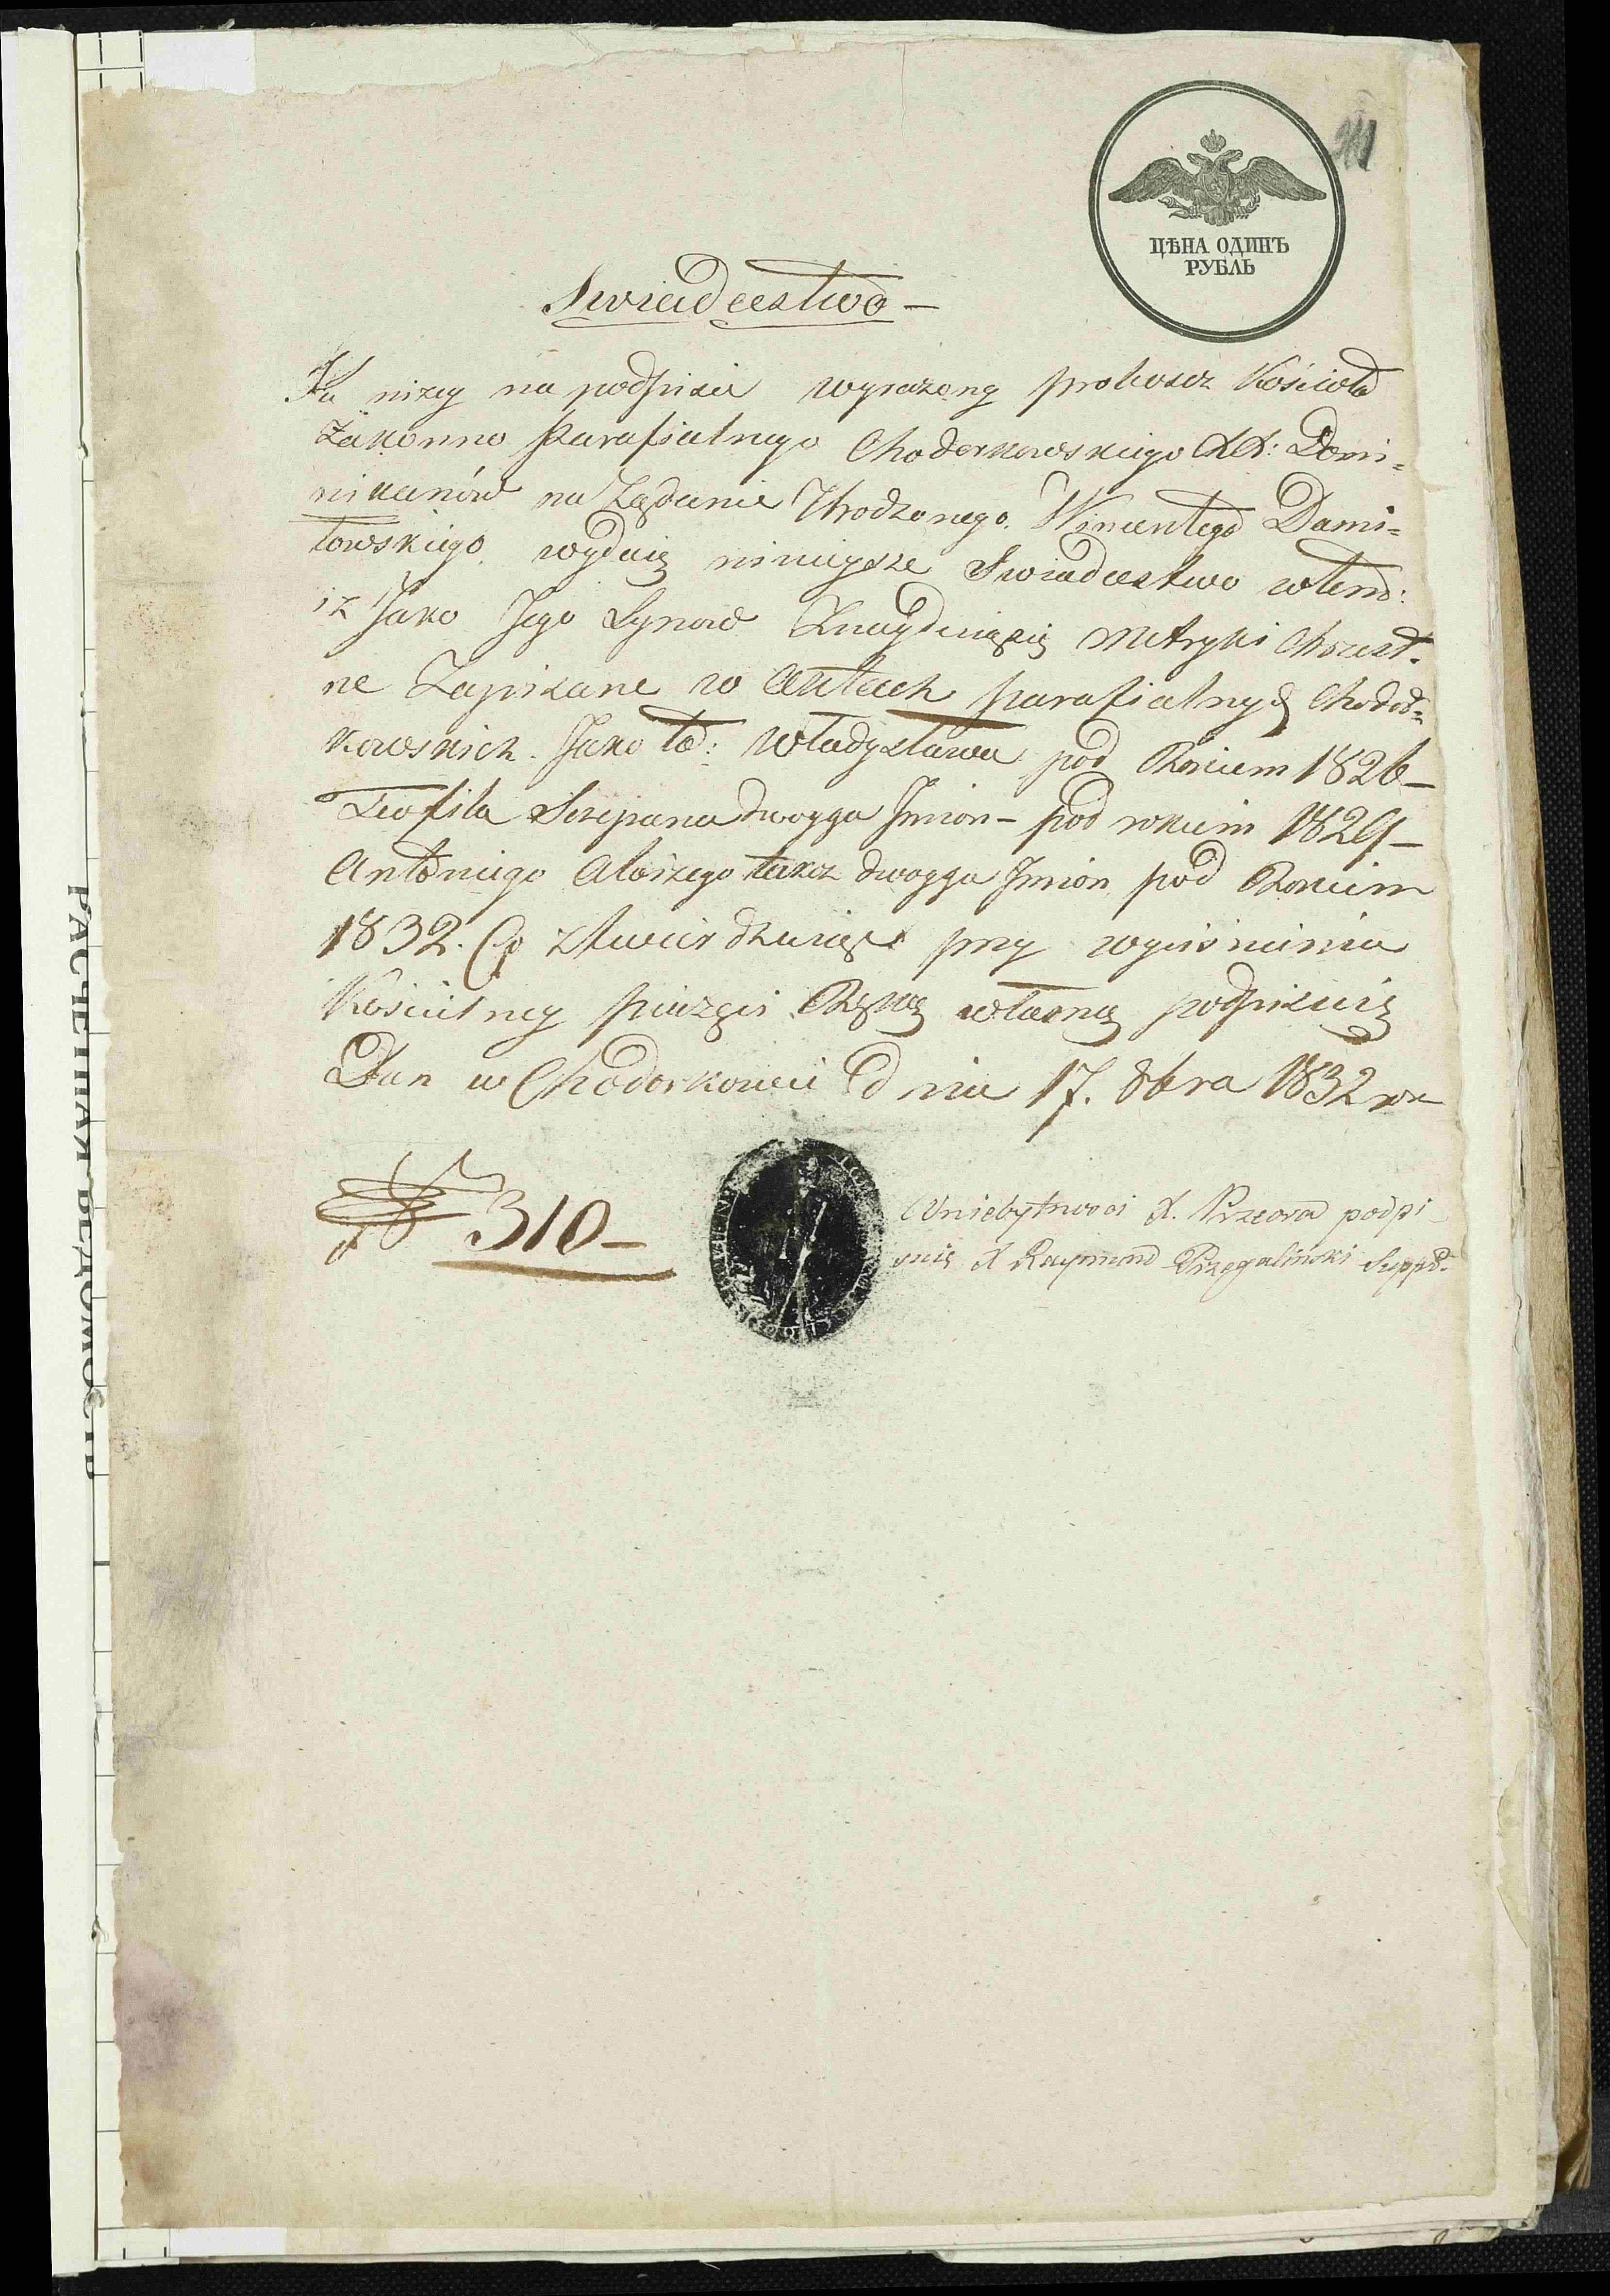 ЦѢНА ОДИНЪ
РУБЛЬ
Swiadectwo —
Ja niżey na podpisie wyrażony proboscz Kościoła
Zakonno Parafialnego Chodorkowskiego XX: Domi=
nikanów na Żądanie Urodzonego Wincentego Dami=
łowskiego wydaię ninieysze Swiadectwo w tem:
iż Jako Jego Synow Znayduią się Metryki Chrzest.
ne Zapisane w Aktach parafialnych Chodor=
kowskich. Jako to: Władysława pod Rokiem 1826 —
Teofila Szczepana dwoyga Jmion — pod rokiem 1829 —
Antoniego Aloizego takoz dwoyga Jmion pod Rokiem
1832. Co ztwierdzaiąc przy wyciśnieniu
Kościelney pieczęci Ręką własną podpisuię
Dan w Chodorkowie dnia 17. 8bra 1832 ro
№ 310 —
W niebytnosci X. Przeora podpi
suię X Raymund Przegaliński Suppr.
РАСЧЕТНАЯ ВѢДОМОСТЬ